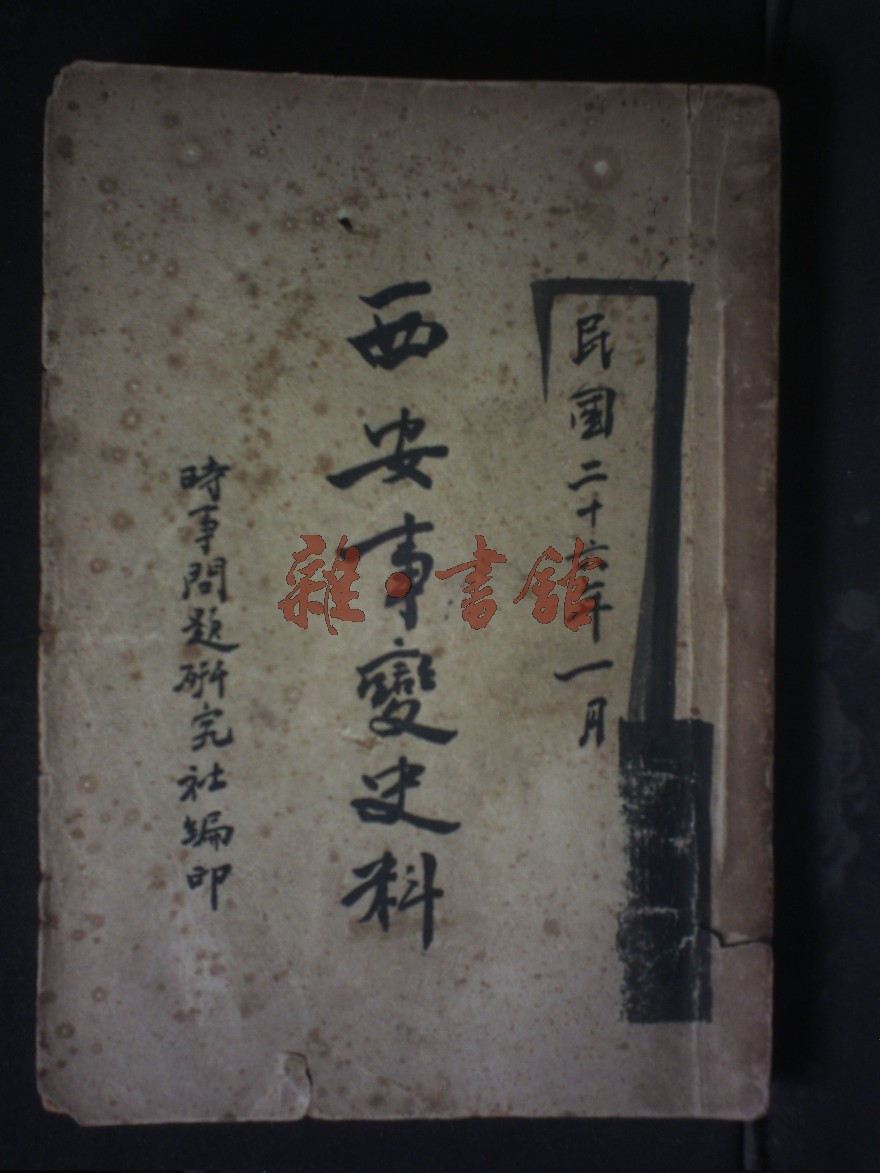 民国二十六年一月
西安事變史料
時事問題研究社編印
雜·書館